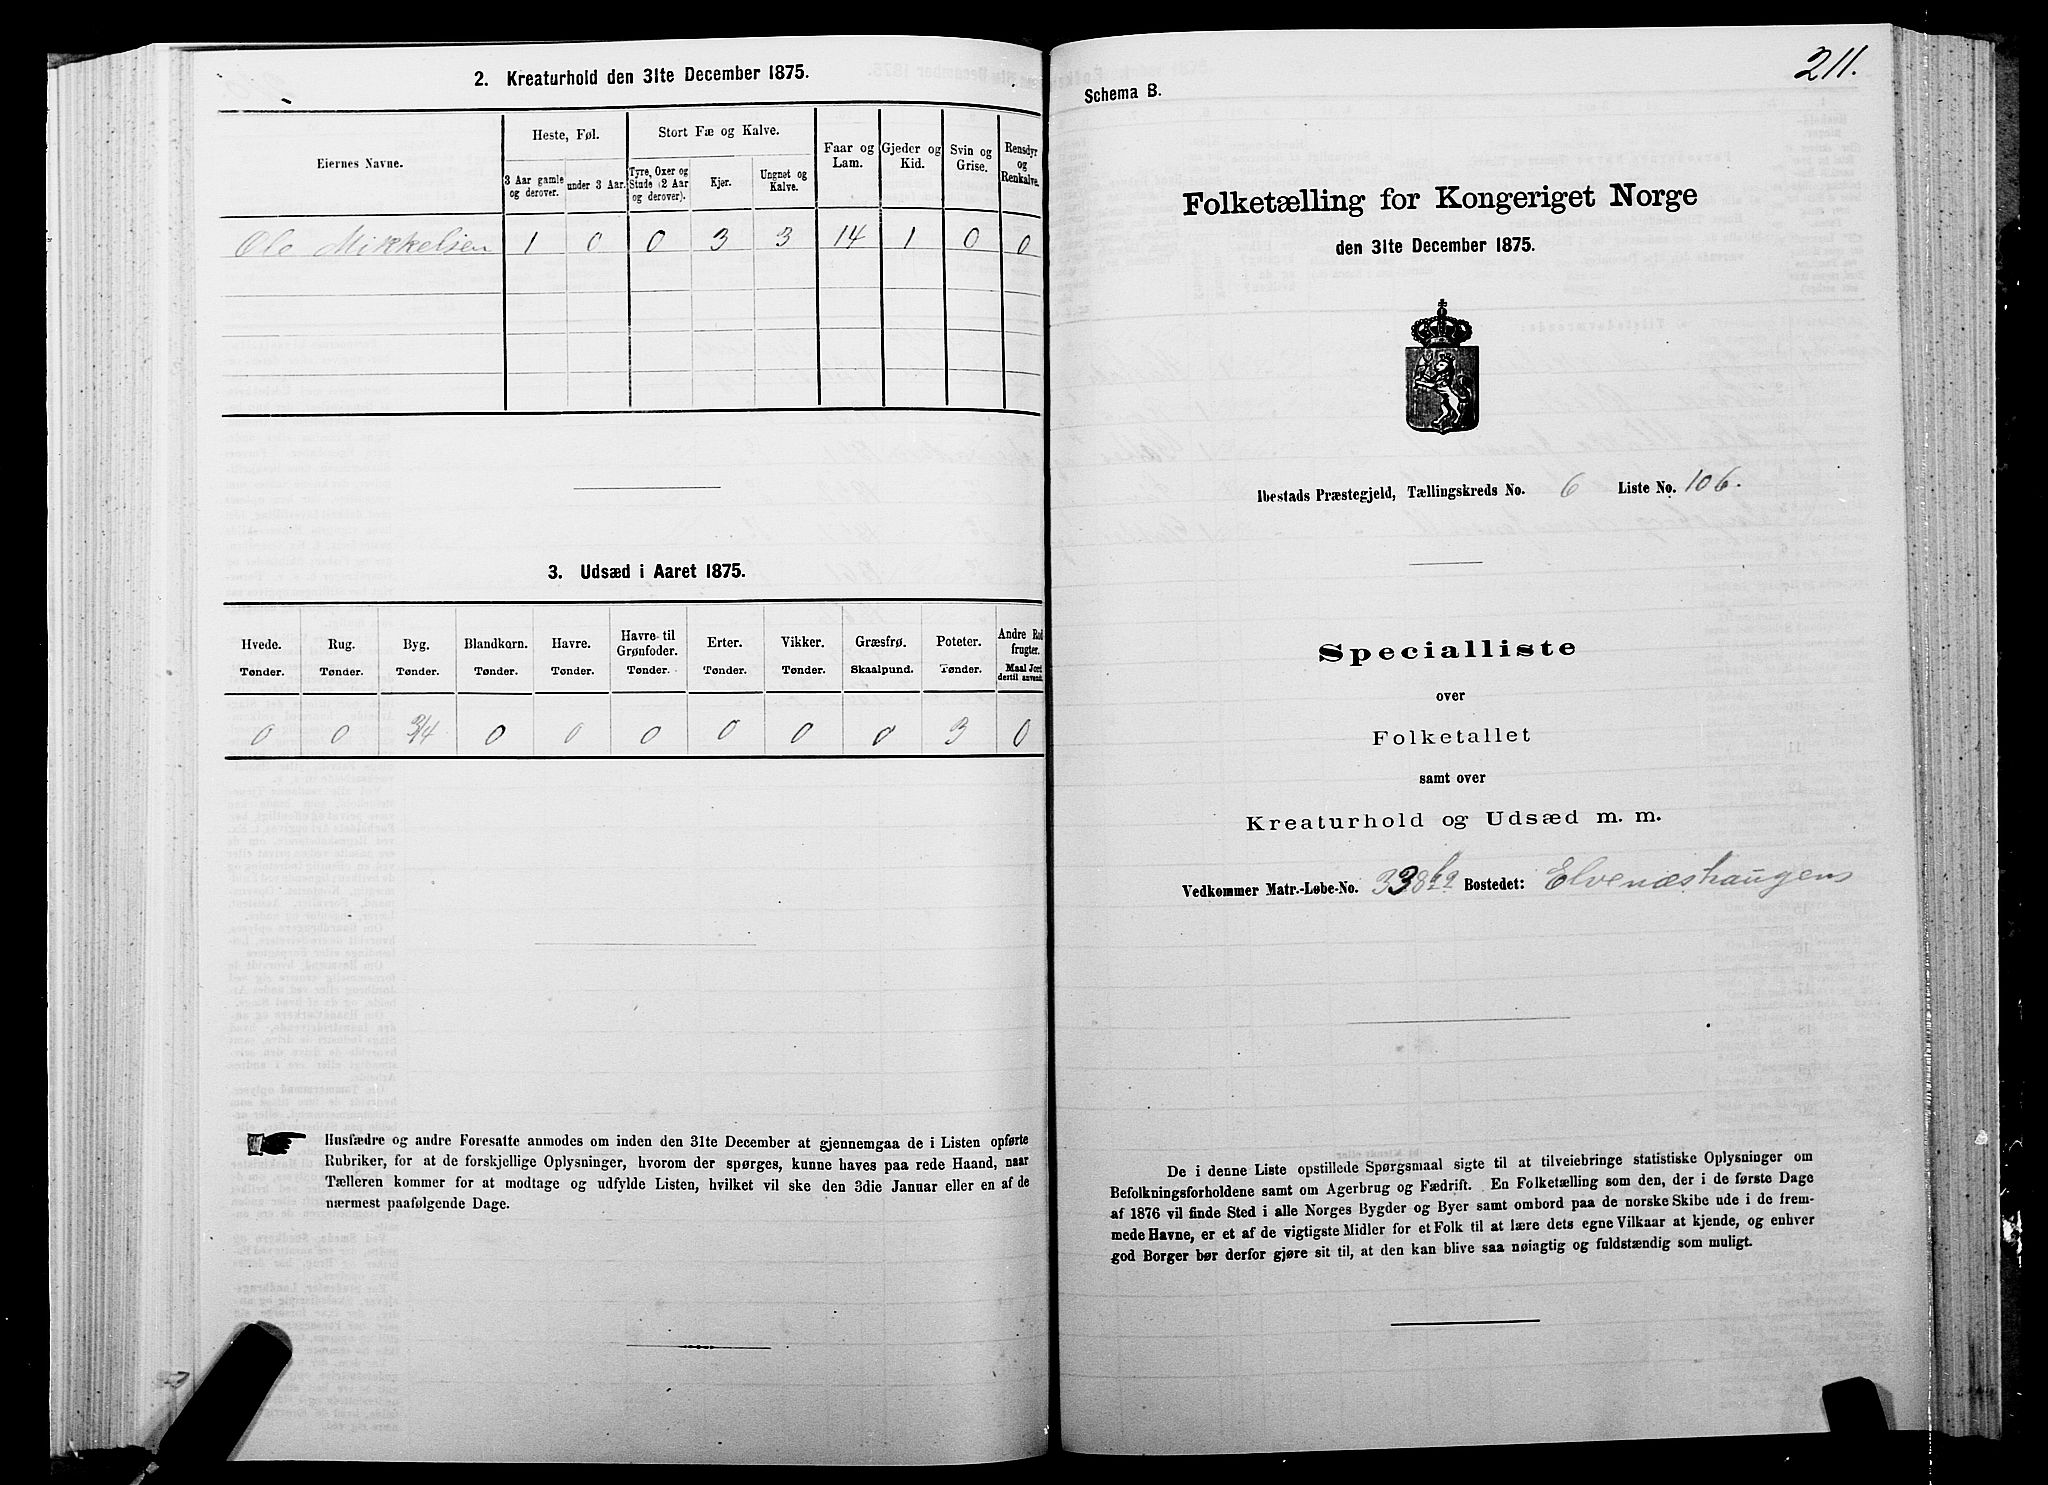 2. Kreaturhold den 31te December 1875.
Eiernes Navne.
Heste, Føl.
Stort Fæ og Kalve.
Faar og Lam.
Gjeder og Kid.
Svin og Grise.
Rensdyr og Renkalve.
3 Aar gamle og derover.
under 3 Aar.
Tyre, Oxer og Stude (2 Aar og derover).
Kjør.
Ungnøt og Kalve.
Ole Mikkelsen 1 0 0 3 3 14 1 0 0
3. Udsæd i Aaret 1875.
Hvede. Rug. Byg. Blandkorn. Havre. Havre til Grønfoder. Erter. Vikker. Græsfrø. Poteter. Andre Rodfrugter.
Tønder. Tønder. Tønder. Tønder. Tønder. Tønder. Tønder. Tønder. Skaalpund. Tønder. Maal Jord dertil anvendt.
0 0 3/4 0 0 0 0 0 0 3 0
Husfædre og andre Foresatte anmodes om inden den 31te December at gjennemgaa de i Listen opførte
Rubriker, for at de forskjellige Oplysninger, hvorom der spørges, kunne haves paa rede Haand, naar
Tælleren kommer for at modtage og udfylde Listen, hvilket vil ske den 3die Januar eller en af de
nærmest paafølgende Dage.
211.
Schema B.
Folketælling for Kongeriget Norge
den 31te December 1875.
Ibestads Præstegjeld, Tællingskreds No. 6 Liste No. 106.
Specialliste
over
Folketallet
samt over
Kreaturhold og Udsæd m. m.
Vedkommer Matr.-Løbe-No. 338 Bostedet: Elvenæshaugen
De i denne Liste opstillede Spørgsmaal sigte til at tilveiebringe statistiske Oplysninger om
Befolkningsforholdene samt om Agerbrug og Fædrift. En Folketælling som den, der i de første Dage
af 1876 vil finde Sted i alle Norges Bygder og Byer samt ombord paa de norske Skibe ude i de frem-
mede Havne, er et af de vigtigste Midler for et Folk til at lære dets egne Vilkaar at kjende, og enhver
god Borger bør derfor gjøre sit til, at den kan blive saa nøiagtig og fuldstændig som muligt.